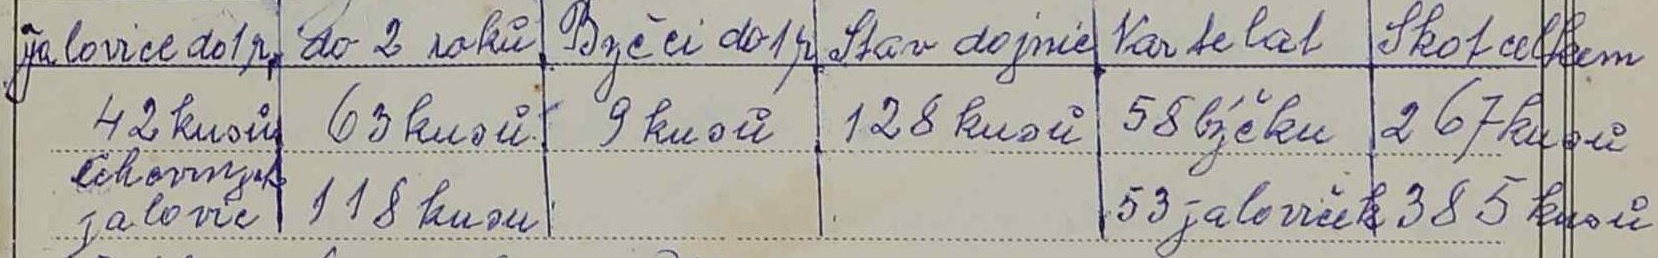 jalovice do 1 r. do 2 roků Býčci do 1 r Stav dojnic Nar telat Skot celkem
42 kusů 63 kusů 9 kusů 128 kusů 58 býčku 267 kusů
jalovic 118 kusu 53 jaloviček 385 kusů